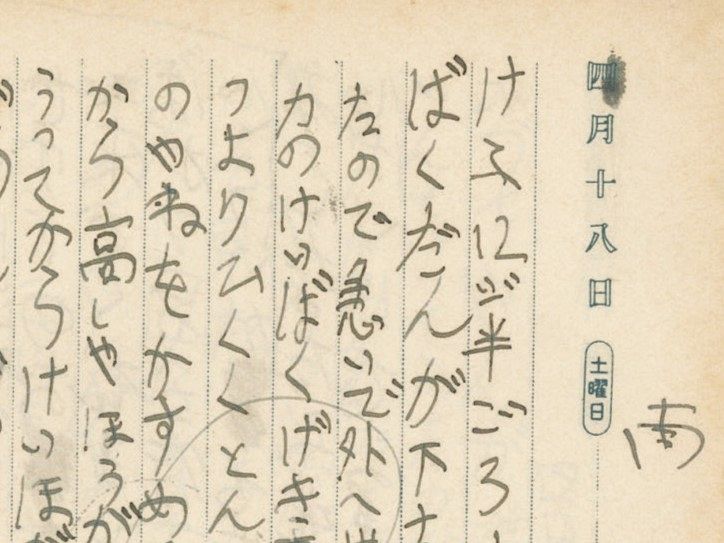 四月十八日 土曜日
けふ12じ半ごろ
ばくだんが下
たので急いで外へ
カのけいばくげき
つよりひくくとん
のやねをかすめ
から高しゃほうが
うってからけいほ